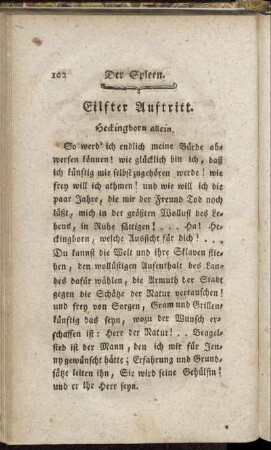 102 Der Spleen.
Eilfter Auftritt.
Heckingborn allein.
So werd' ich endlich meine Bürde ab-
werfen können! wie glücklich bin ich, daß
ich künftig mir selbst zugehören werde! wie
frey will ich athmen! und wie will ich die
paar Jahre, die mir der Freund Tod noch
läßt, mich in der größten Wollust des Le-
bens, in Ruhe sättigen! . . . Ha! He-
ckingborn, welche Aussicht für dich! . . .
Du kannst die Welt und ihre Sklaven flie-
hen, den wollüstigen Aufenthalt des Lan-
des dafür wählen, die Armuth der Stadt
gegen die Schätze der Natur vertauschen!
und frey von Sorgen, Gram und Grillen
künftig das seyn, wozu der Wunsch er-
schaffen ist: Herr der Natur! . . Beagel-
sied ist der Mann, den ich mir für Jen-
ny gewünscht hätte; Erfahrung und Grund-
sätze leiten ihn, Sie wird seine Gehülfin!
und er Ihr Herr seyn.